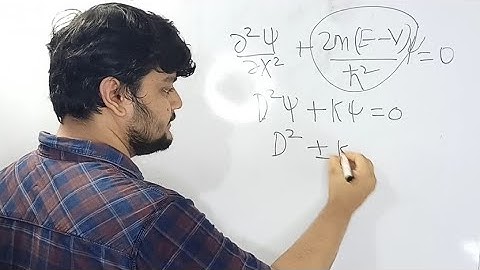 ∂²Ψ/∂x² + 2m(E-V)/ħ² Ψ = 0
D²Ψ + KΨ = 0
D² ± K